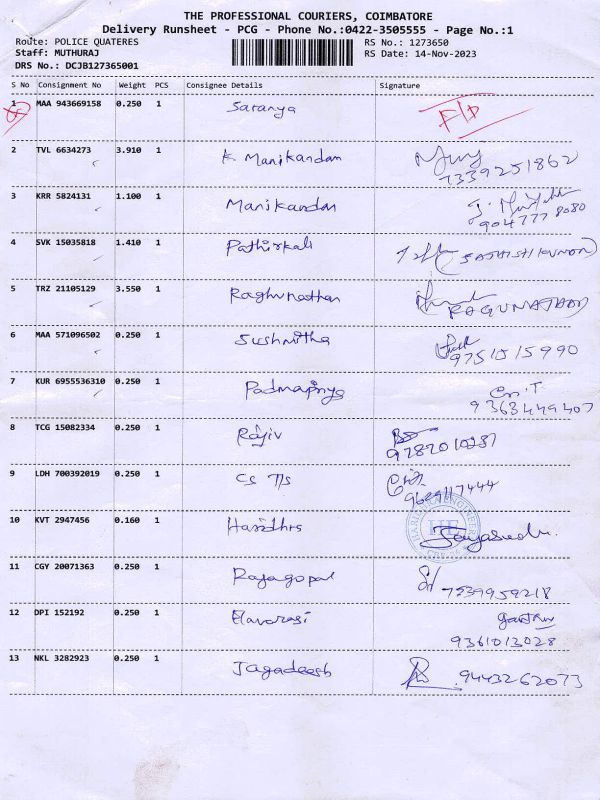 THE PROFESSIONAL COURIERS, COIMBATORE
Delivery Runsheet - PCG - Phone No.:0422-3505555 - Page No.:1
Route: POLICE QUATERES
Staff: MUTHURAJ
DRS No.: DCJB127365001
RS No.: 1273650
RS Date: 14-Nov-2023
S No Consignment No Weight PCS Consignee Details Signature
1 MAA 943669158 0.250 1 Saranya
2 TVL 6634273 3.910 1 K Manikandan
7339251862
3 KRR 5824131 1.100 1 Manikandan
904777 8080
4 SVK 15035818 1.410 1 Pathirkali (SATHISH KUMAR)
5 TRZ 21105129 3.550 1 Raghunathan
6 MAA 571096502 0.250 1 Sushmitha
9751515990
7 KUR 6955536310 0.250 1
9363449407
8 TCG 15082334 0.250 1 Rajiv
9 LDH 700392019 0.250 1
10 KVT 2947456 0.160 1
HE
11 CGY 20071363 0.250 1 Rajagopal
7539959218
12 DPI 152192 0.250 1 Elavarasi
9361013028
13 NKL 3282923 0.250 1 Jagadeesh 9443262073